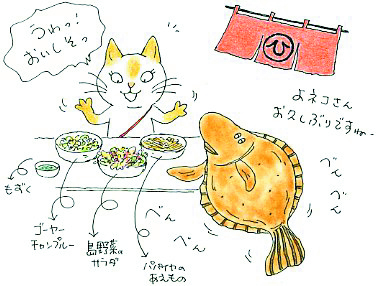 うわっ!
おいしそっ
ひ
よネコさん
お久しぶりですねー
べん
べん
べん
べん
べん
もずく
ゴーヤー
チャンプルー
島野菜の
サラダ
パパイヤの
あえもの